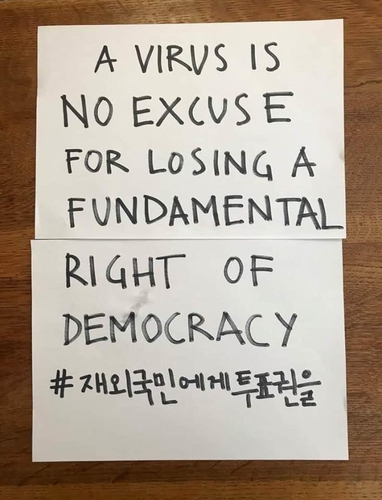 A VIRUS IS
NO EXCUSE
FOR LOSING A
FUNDAMENTAL
RIGHT OF
DEMOCRACY
#재외국민에게투표권을